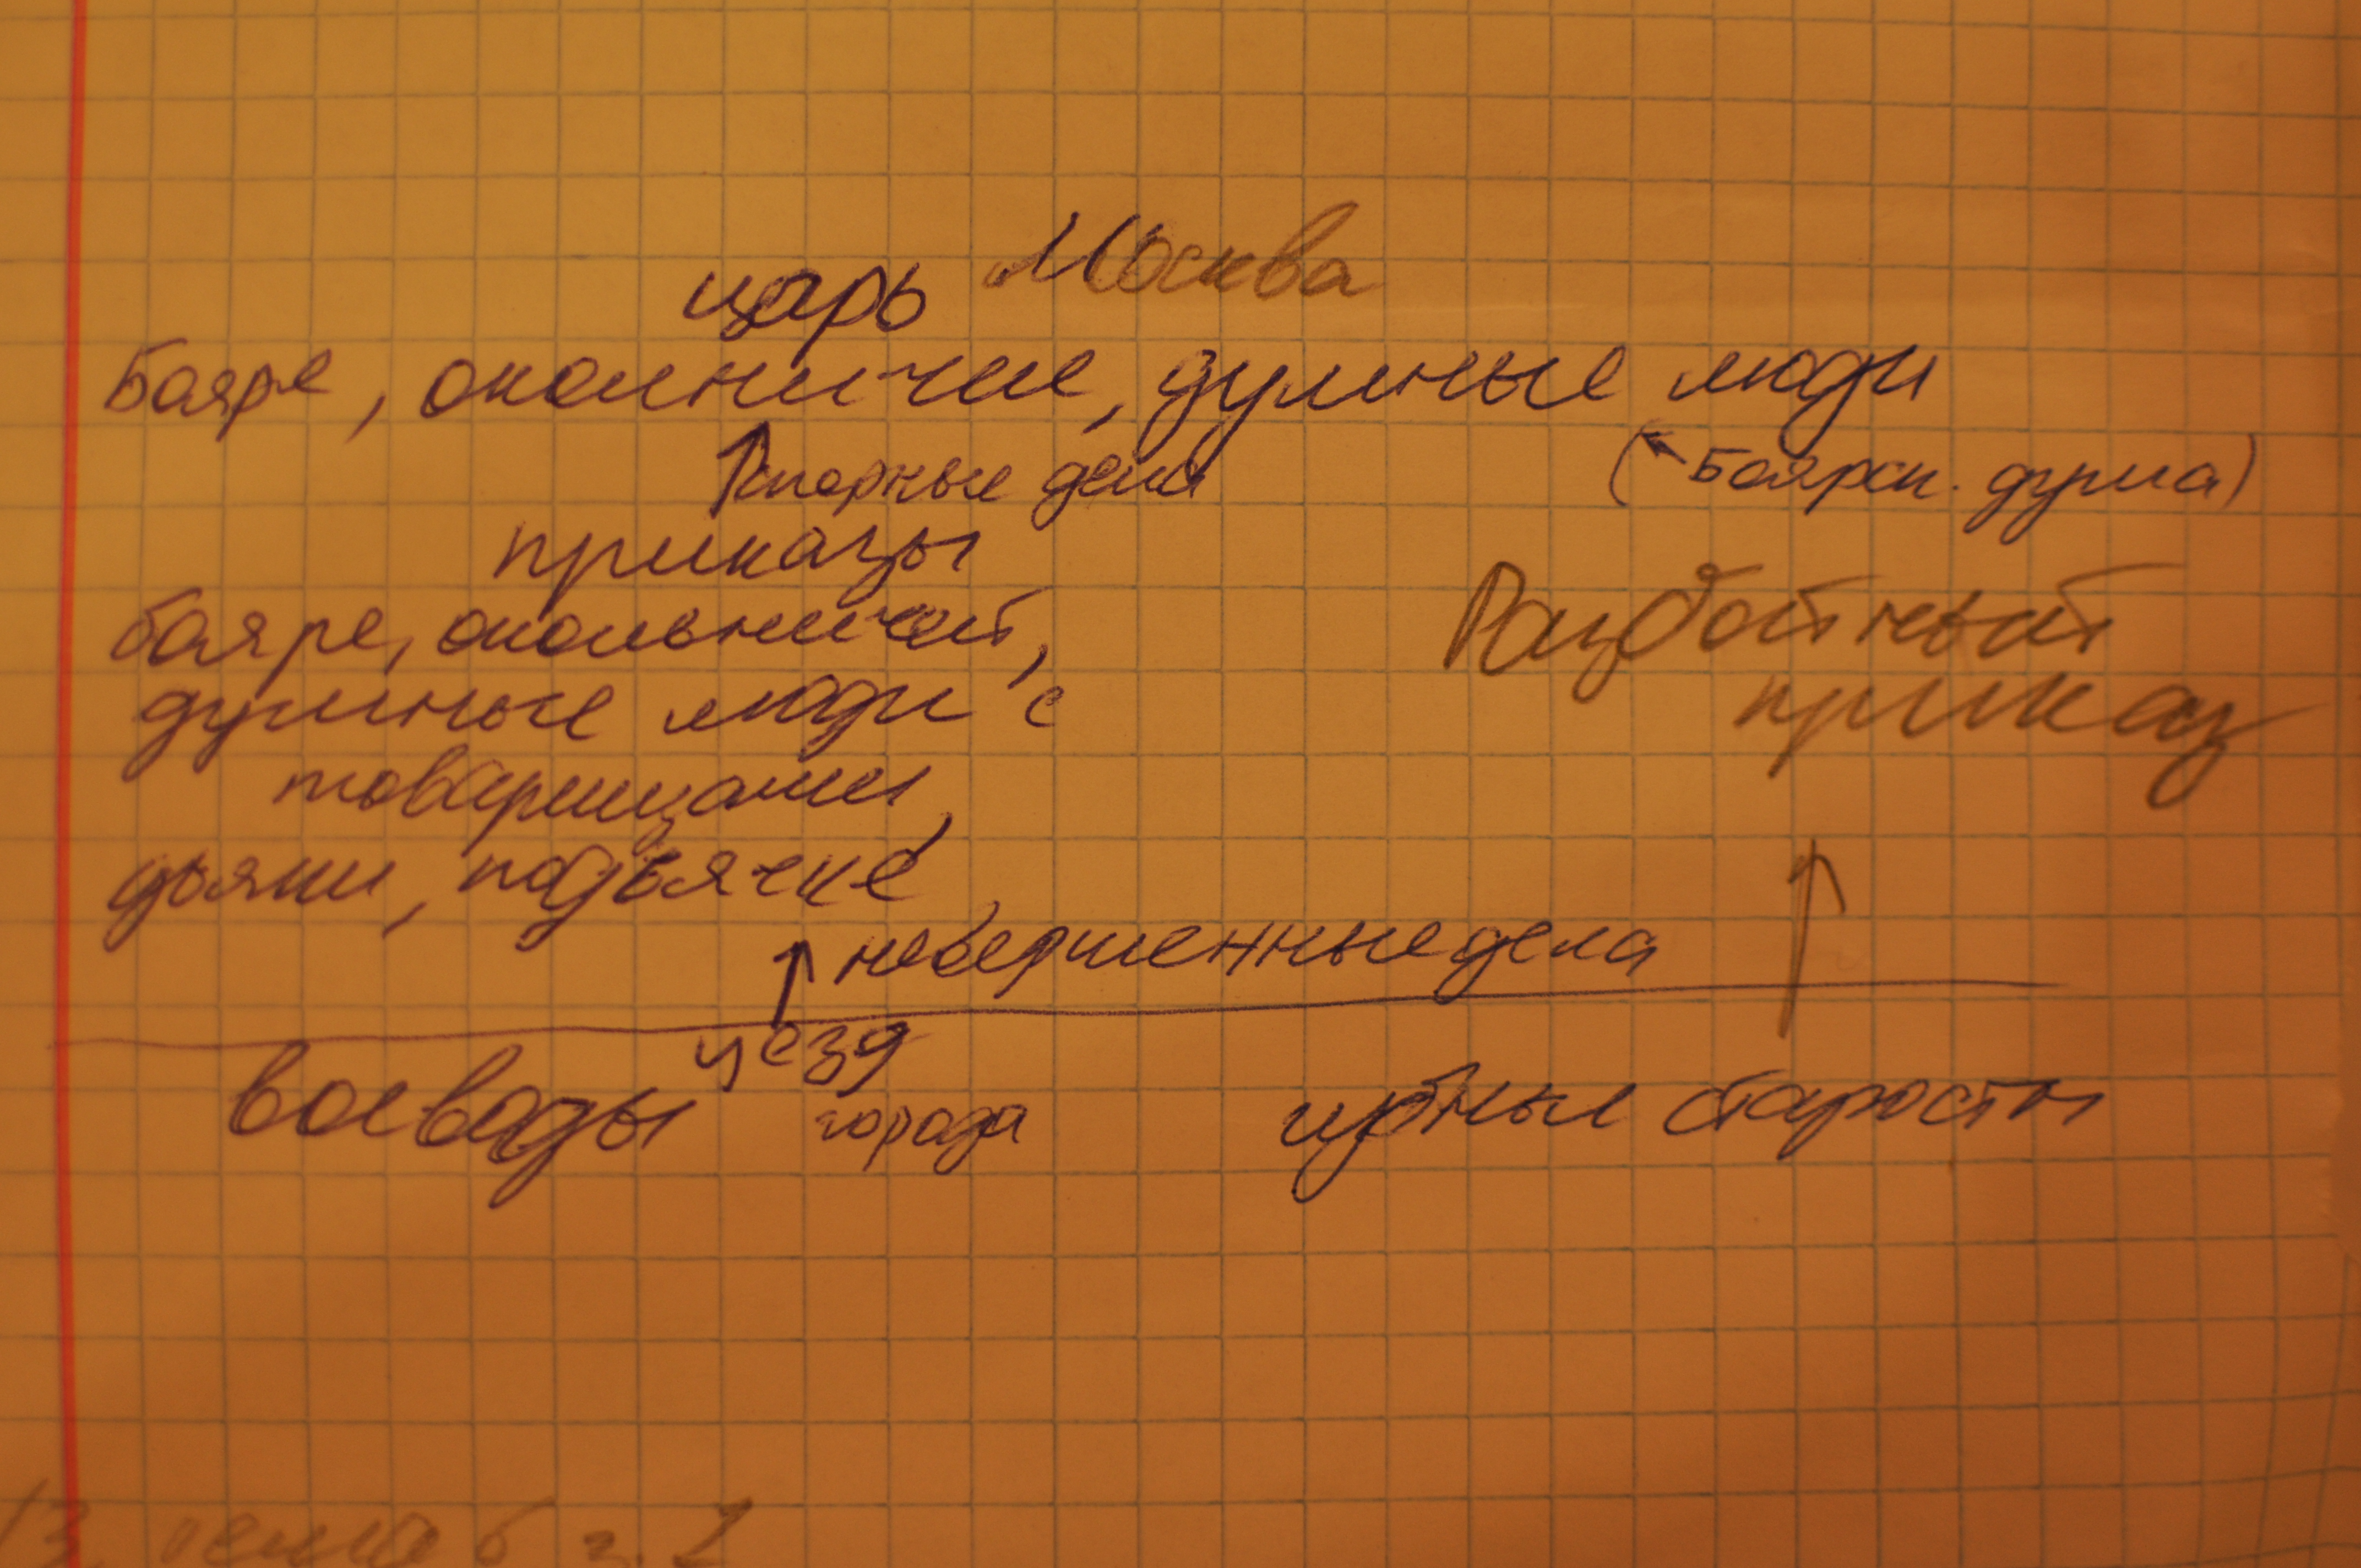 царь Москва
Бояре, околничие, думные люди
спорные дела
(Боярск. дума)
приказы
Разбойный
приказ
бояре, окольничий,
думные люди с
товарищами,
дьяки, подьячие
невершенные дела
уезд
воеводы
города
губные старосты